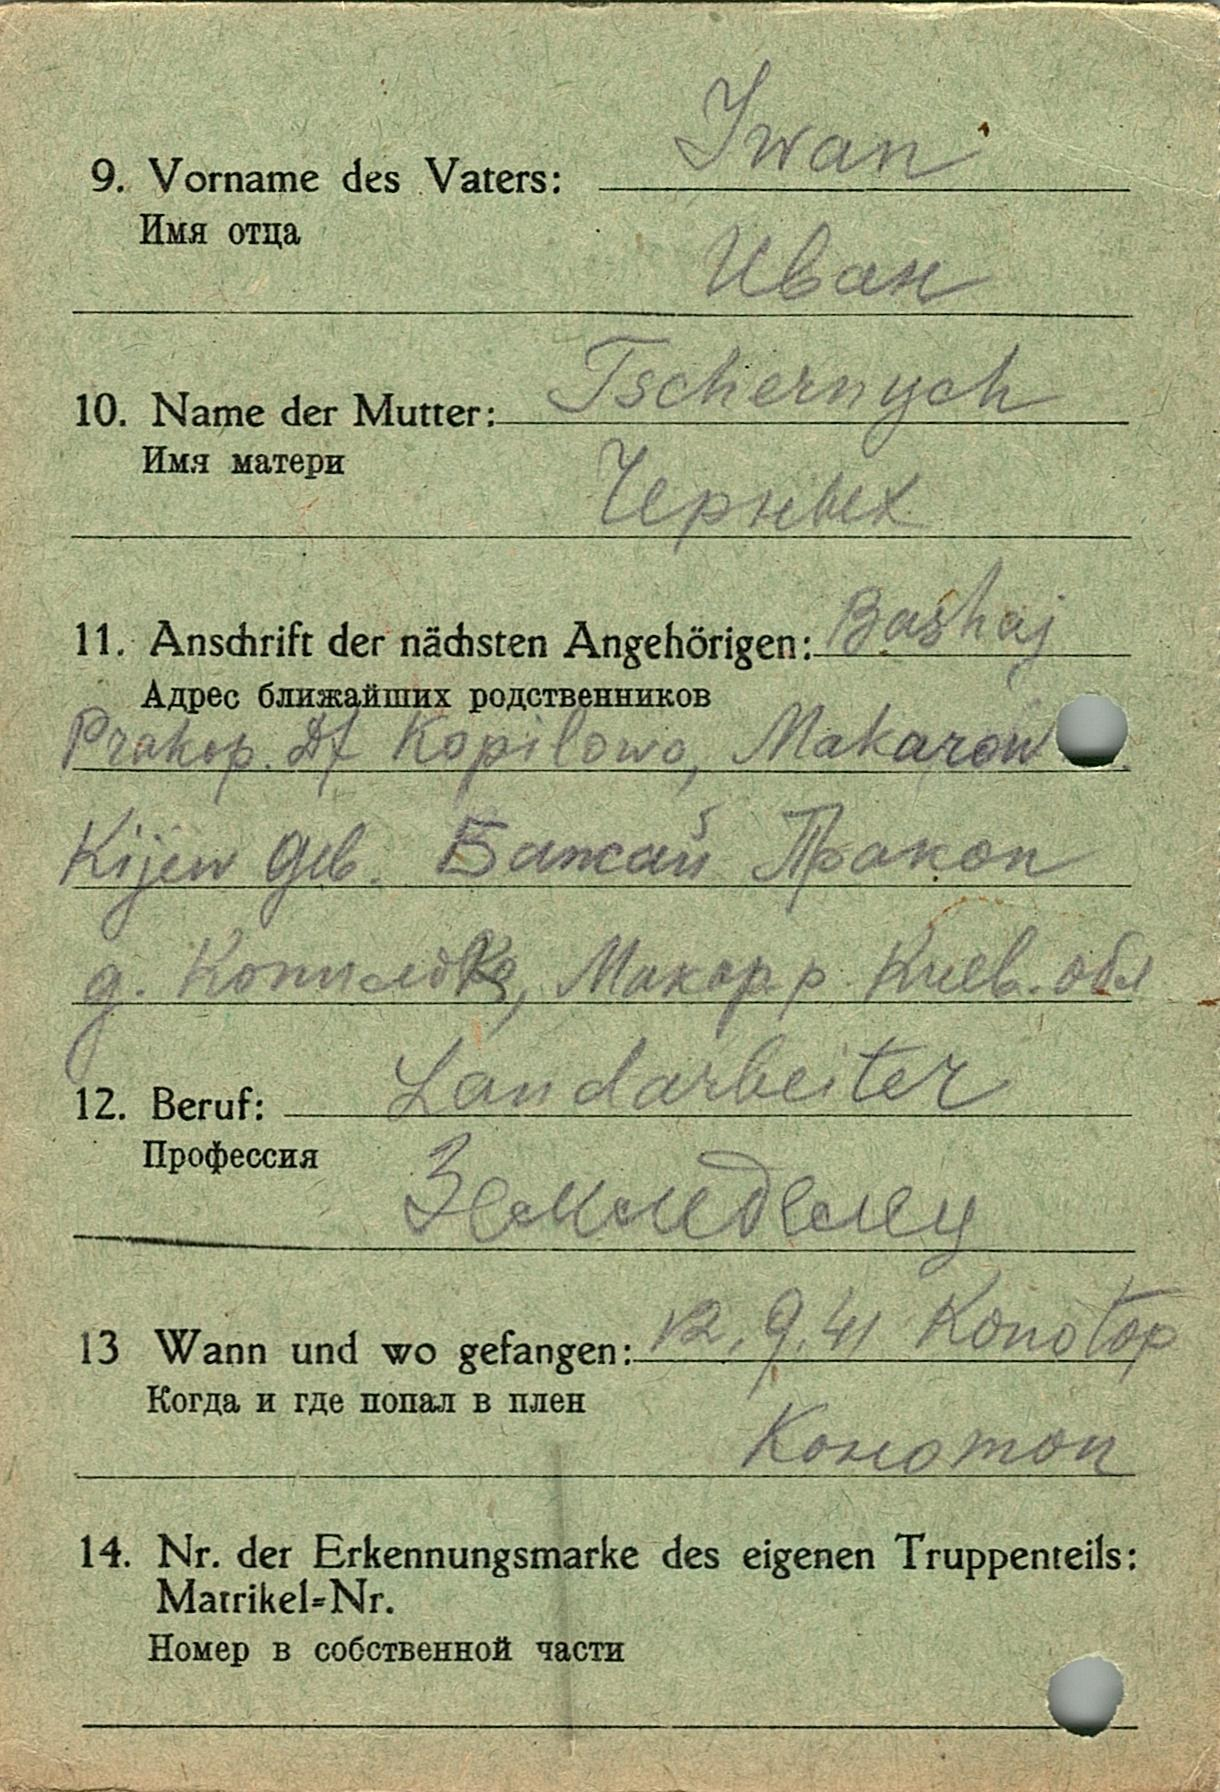 Iwan
9. Vorname des Vaters:
Имя отца
Иван
Tschernych
10. Name der Mutter:
Имя матери
Черных
11. Anschrift der nächsten Angehörigen: Bashaj
Адрес ближайших родственников
Prokop. Df Kopilowo, Makarow
Kijew Geb. Бажай Пракоп
д. Копиловка, Макар. р. Киев. обл
12. Beruf: Landarbeiter
Профессия
13 Wann und wo gefangen: 12.9.41 Konotop
Когда и где попал в плен
Конотоп
14. Nr. der Erkennungsmarke des eigenen Truppenteils:
Matrikel=Nr.
Номер в собственной части